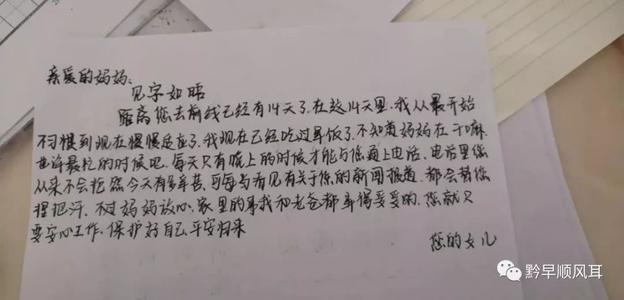 亲爱的妈妈:
见字如晤
距离您去前线已经有14天了.在这14天里,我从最开始
不习惯到现在慢慢适应了.我现在已经吃过早饭了.不知道妈妈在干嘛
也许最忙的时候吧.每天只有晚上的时候才能与您通上电话.电话里您
从来不会抱怨今天有多辛苦.可每当看见有关于你的新闻报道.都会替您
捏把汗.不过妈妈放心.家里的事我和老爸都弄得妥妥的.您就只
要安心工作.保护好自己.平安归来
您的女儿
黔早顺风耳